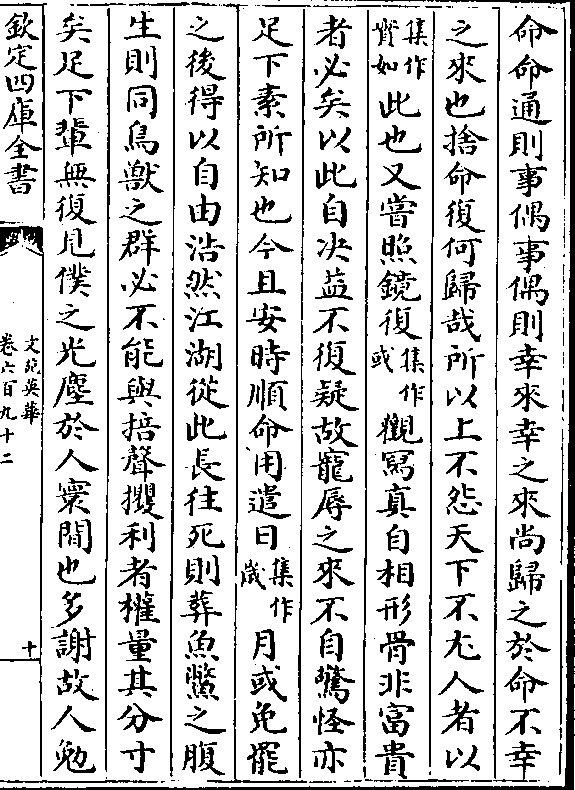 命命通則事偶事偶則幸來幸之來尚歸之於命不幸
之來也捨命復何歸哉所以上不怨天下不尤人者以
集作實如此也又嘗照鏡復集作或觀寫真自相形骨非富貴
者必矣以此自決益不復疑故寵辱之來不自驚怪亦
足下素所知也今且安時順命用遣日集作歲月或免罷
之後得以自由浩然江湖從此長往死則葬魚鱉之腹
生則同鳥獸之群必不能與掊聲攫利者㩲量其分寸
矣足下輩無復見僕之光塵於人寰間也多謝故人勉
欽定四庫全書
文苑英華
卷六百九十二
十